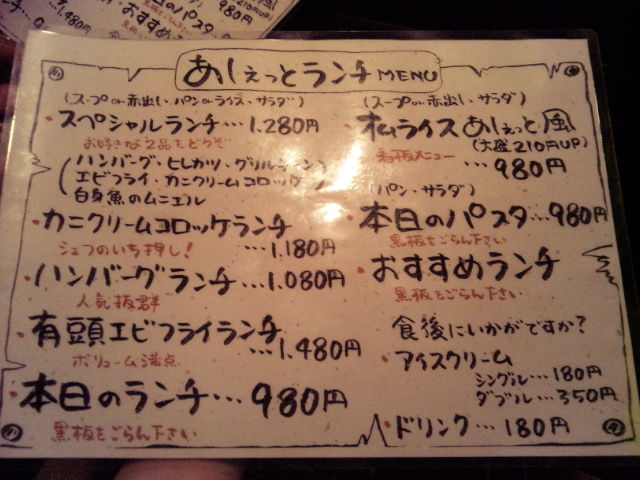 あしぇっとランチMENU
(スープor赤出し・パンorライス・サラダ)
・スペシャルランチ…1,280円
お好きな2品をどうぞ
(ハンバーグ・ヒレカツ・グリルチキン
エビフライ・カニクリームコロッケ
白身魚のムニエル)
・カニクリームコロッケランチ
…1,180円
シェフのいち押し!
・ハンバーグランチ…1,080円
人気抜群
・有頭エビフライランチ
…1,480円
ボリューム満点
・本日のランチ…980円
黒板をごらん下さい
(スープor赤出し・サラダ)
・オムライスあしぇっと風
(大盛210円UP)
看板メニュー…980円
(パン・サラダ)
・本日のパスタ…980円
黒板をごらん下さい
・おすすめランチ
黒板をごらん下さい
食後にいかがですか?
・アイスクリーム
シングル…180円
ダブル…350円
・ドリンク…180円